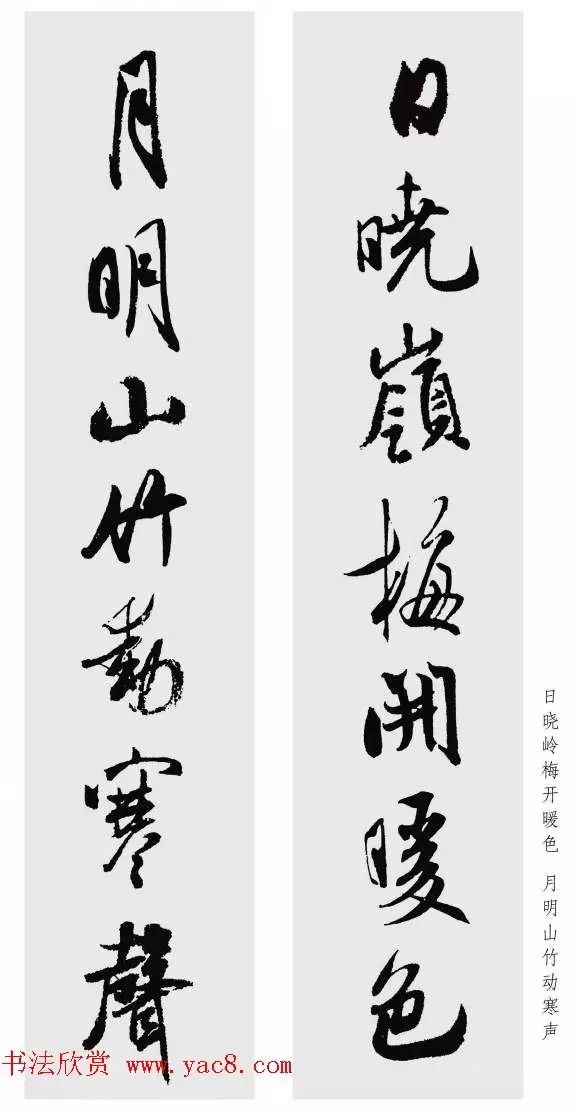 日曉嶺梅開暖色
月明山竹動寒聲
日晓岭梅开暖色 月明山竹动寒声
书法欣赏 www.yac8.com